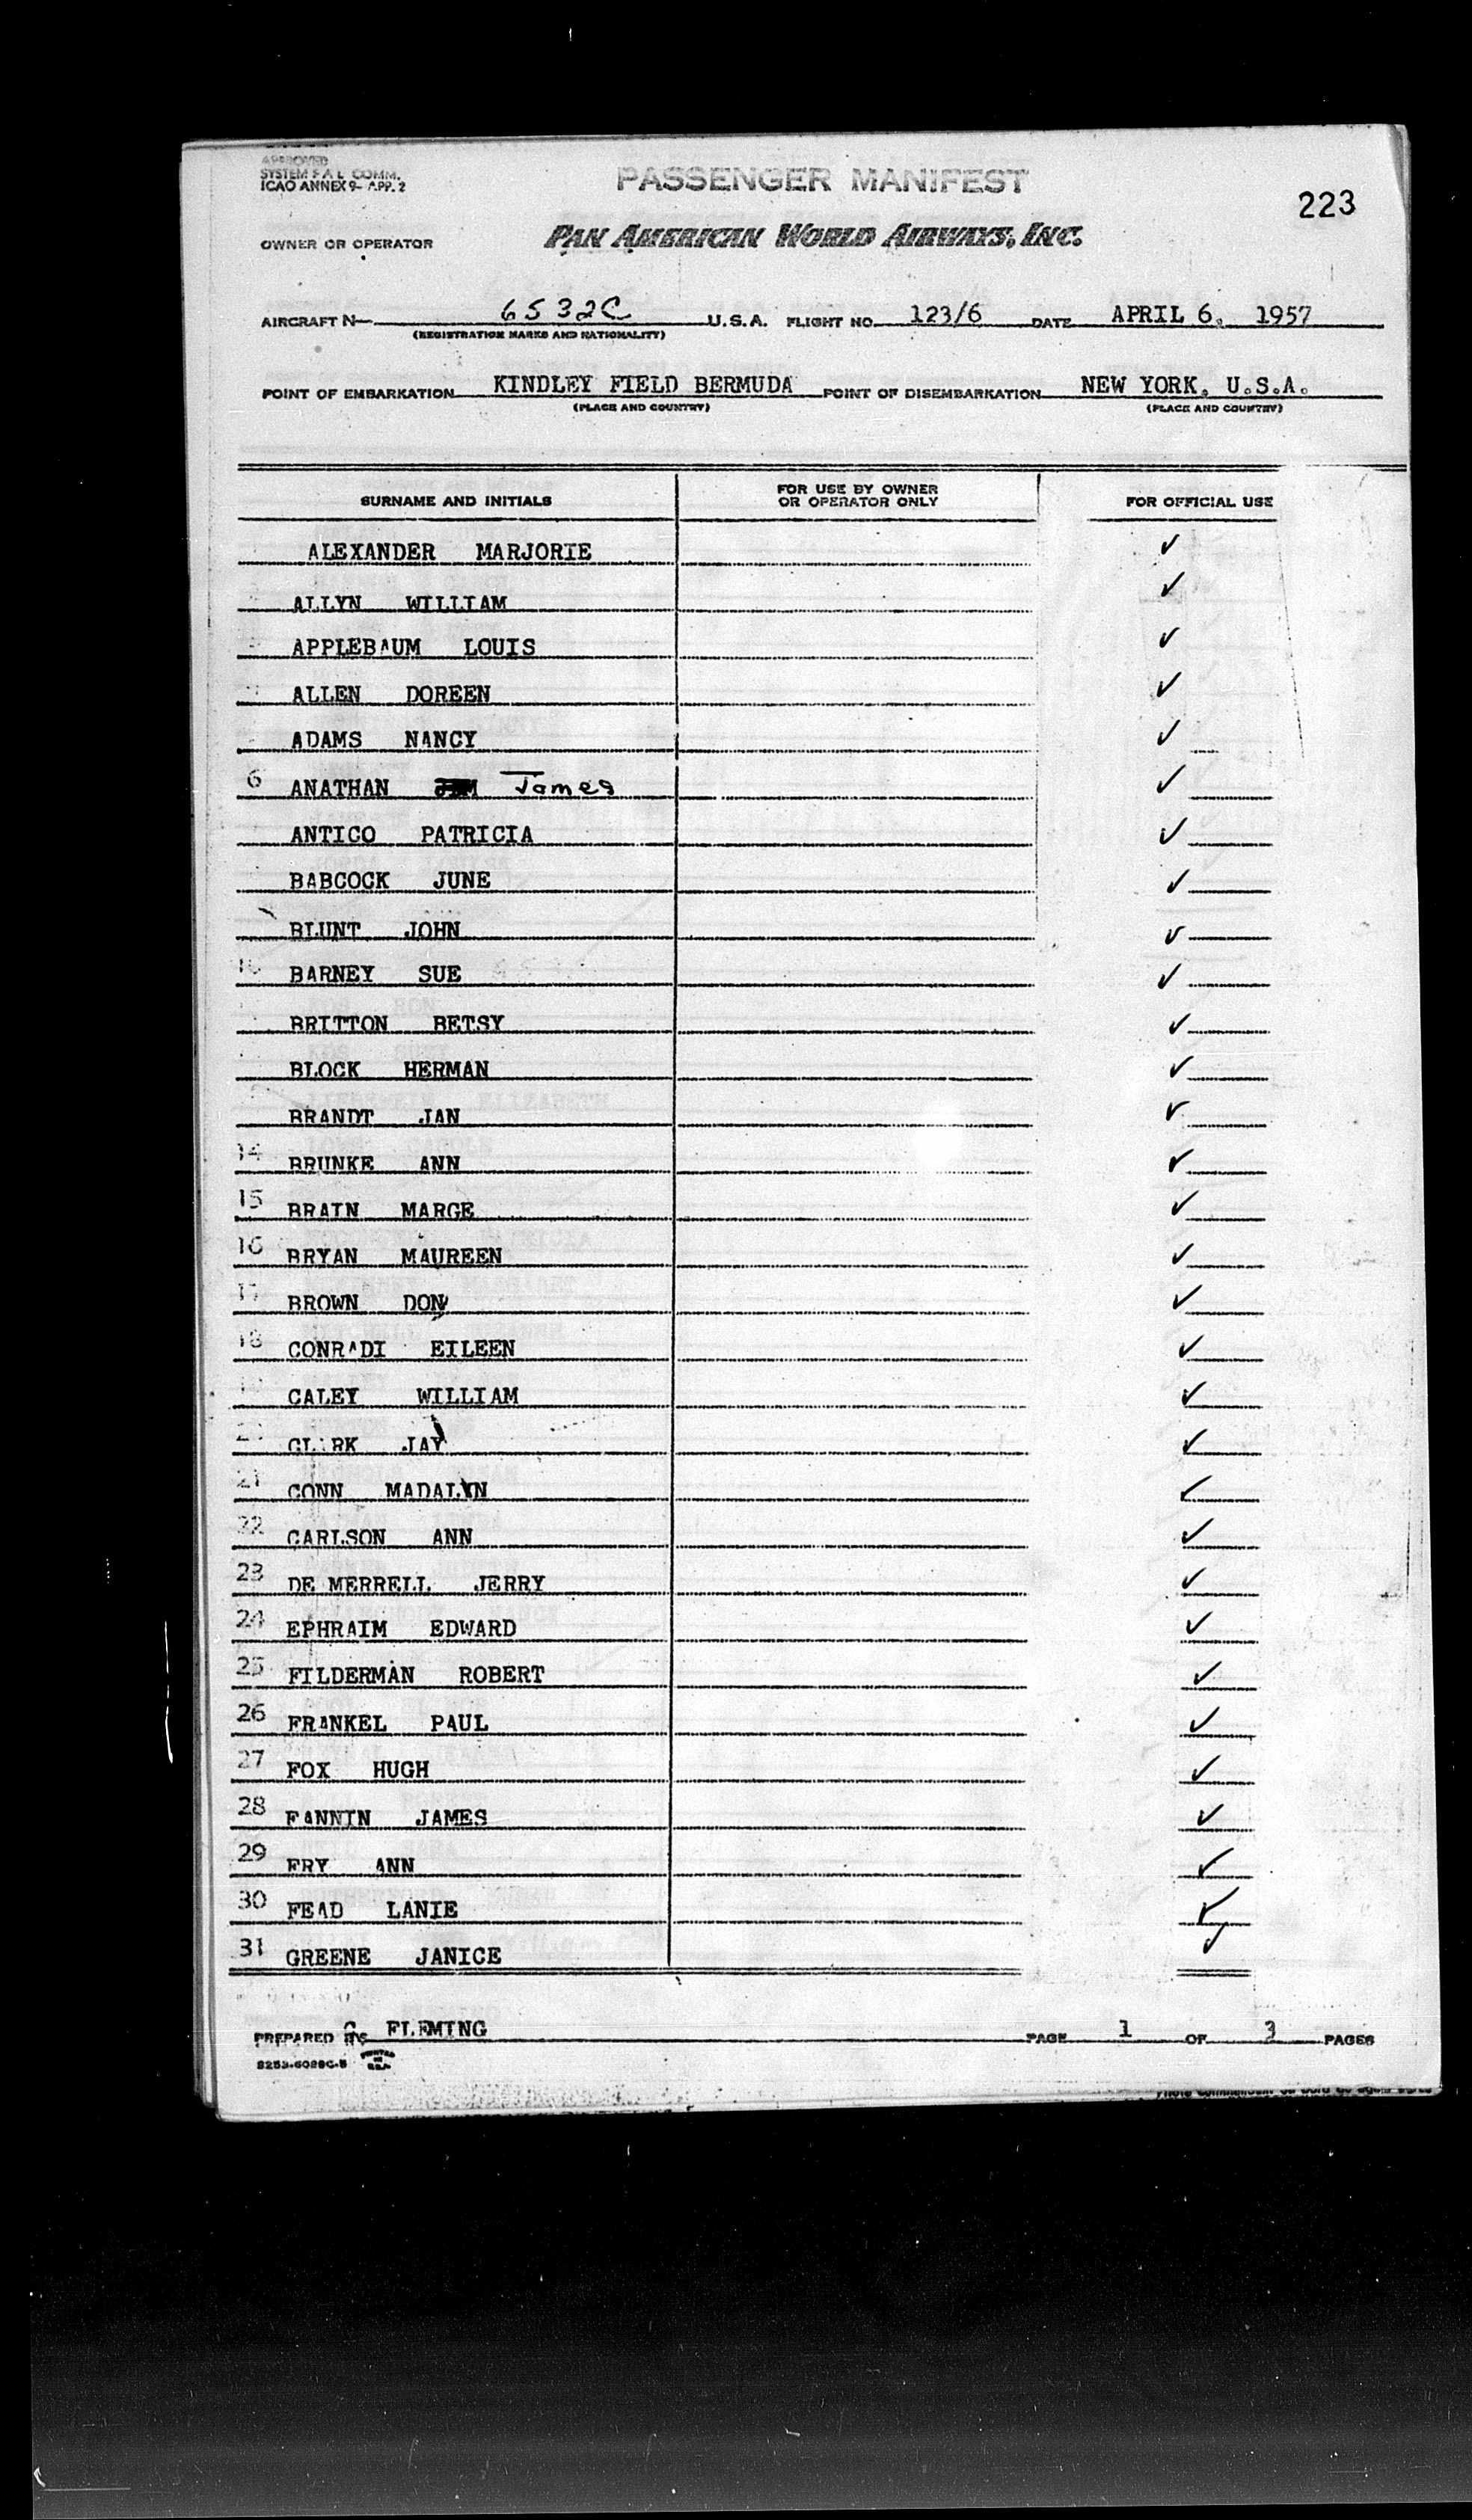 APPROVED
SYSTEM F A L COMM.
ICAO ANNEX 9- APP. 2
PASSENGER MANIFEST
223
OWNER OR OPERATOR
PAN AMERICAN WORLD AIRWAYS, INC.
AIRCRAFT N- 6532C U.S.A. FLIGHT NO. 123/6 DATE APRIL 6, 1957
(REGISTRATION MARKS AND NATIONALITY)
POINT OF EMBARKATION KINDLEY FIELD BERMUDA POINT OF DISEMBARKATION NEW YORK, U.S.A.
(PLACE AND COUNTRY) (PLACE AND COUNTRY)
SURNAME AND INITIALS FOR USE BY OWNER OR OPERATOR ONLY FOR OFFICIAL USE
ALEXANDER MARJORIE ✓
ALLYN WILLIAM ✓
APPLEBAUM LOUIS ✓
ALLEN DOREEN ✓
ADAMS NANCY ✓
6 ANATHAN James ✓
ANTICO PATRICIA ✓
BABCOCK JUNE ✓
BLUNT JOHN ✓
10 BARNEY SUE ✓
BRITTON BETSY ✓
BLOCK HERMAN ✓
BRANDT JAN ✓
14 BRUNKE ANN ✓
15 BRAIN MARGE ✓
16 BRYAN MAUREEN ✓
17 BROWN DON ✓
18 CONRADI EILEEN ✓
19 CALEY WILLIAM ✓
20 CLARK JAY ✓
21 CONN MADALYN ✓
22 CARLSON ANN ✓
23 DE MERRELL JERRY ✓
24 EPHRAIM EDWARD ✓
25 FILDERMAN ROBERT ✓
26 FRANKEL PAUL ✓
27 FOX HUGH ✓
28 FANNIN JAMES ✓
29 FRY ANN ✓
30 FEAD LANIE ✓
31 GREENE JANICE ✓
PREPARED FLEMING PAGE 1 OF 3 PAGES
PRINTED IN U.S.A.